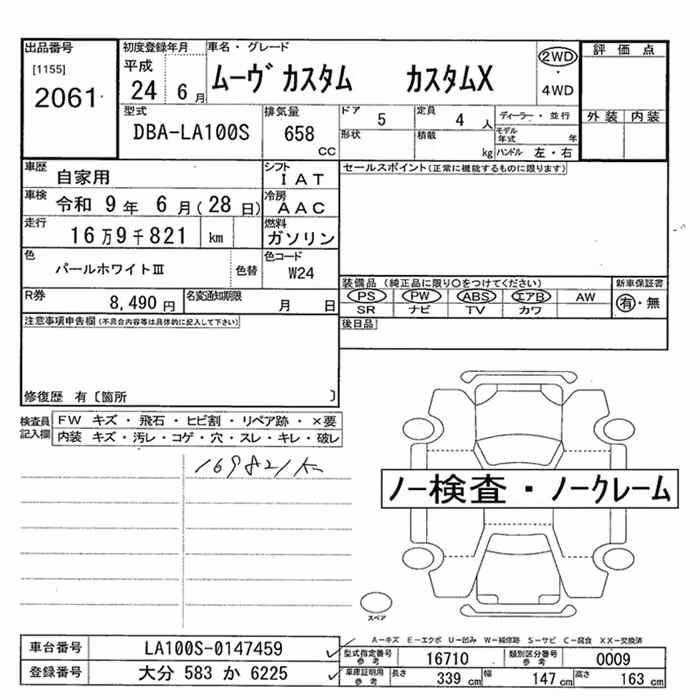 出品番号
[1155]
2061
初度登録年月
平成
24年6月
車名・グレード
ムーヴ カスタム カスタムX
2WD
・
4WD
評価点
外装 内装
型式
DBA-LA100S
排気量
658
CC
ドア 5
形状
定員 4 人
積載 kg
ディーラー・並行
モデル年式 年
ハンドル 左・右
車歴
自家用
シフト
IAT
車検
令和 9年 6月(28日)
冷房
AAC
走行
16万9千821 km
燃料
ガソリン
色
パールホワイトⅢ
色替
色コード
W24
R券
8,490円
名変通知期限
月 日
セールスポイント(正常に機能するものに限ります)
装備品 (純正品に限り○をつけてください)
新車保証書
PS PW ABS エアB AW
SR ナビ TV カワ
有・無
後日品
注意事項申告欄(不具合内容等は具体的に記入して下さい)
修復歴 有〔箇所 〕
検査員記入欄
FW キズ・飛石・ヒビ割・リペア跡・×要
内装 キズ・汚レ・コゲ・穴・スレ・キレ・破レ
169821K
ノー検査・ノークレーム
スペア
A-キズ E-エクボ U-凹み W-補修跡 S-サビ C-腐食 XX-交換済
車台番号 LA100S-0147459
登録番号 大分 583 か 6225
型式指定番号 参考 16710
類別区分番号 参考 0009
車庫証明用 参考
長さ 339 cm
幅 147 cm
高さ 163 cm